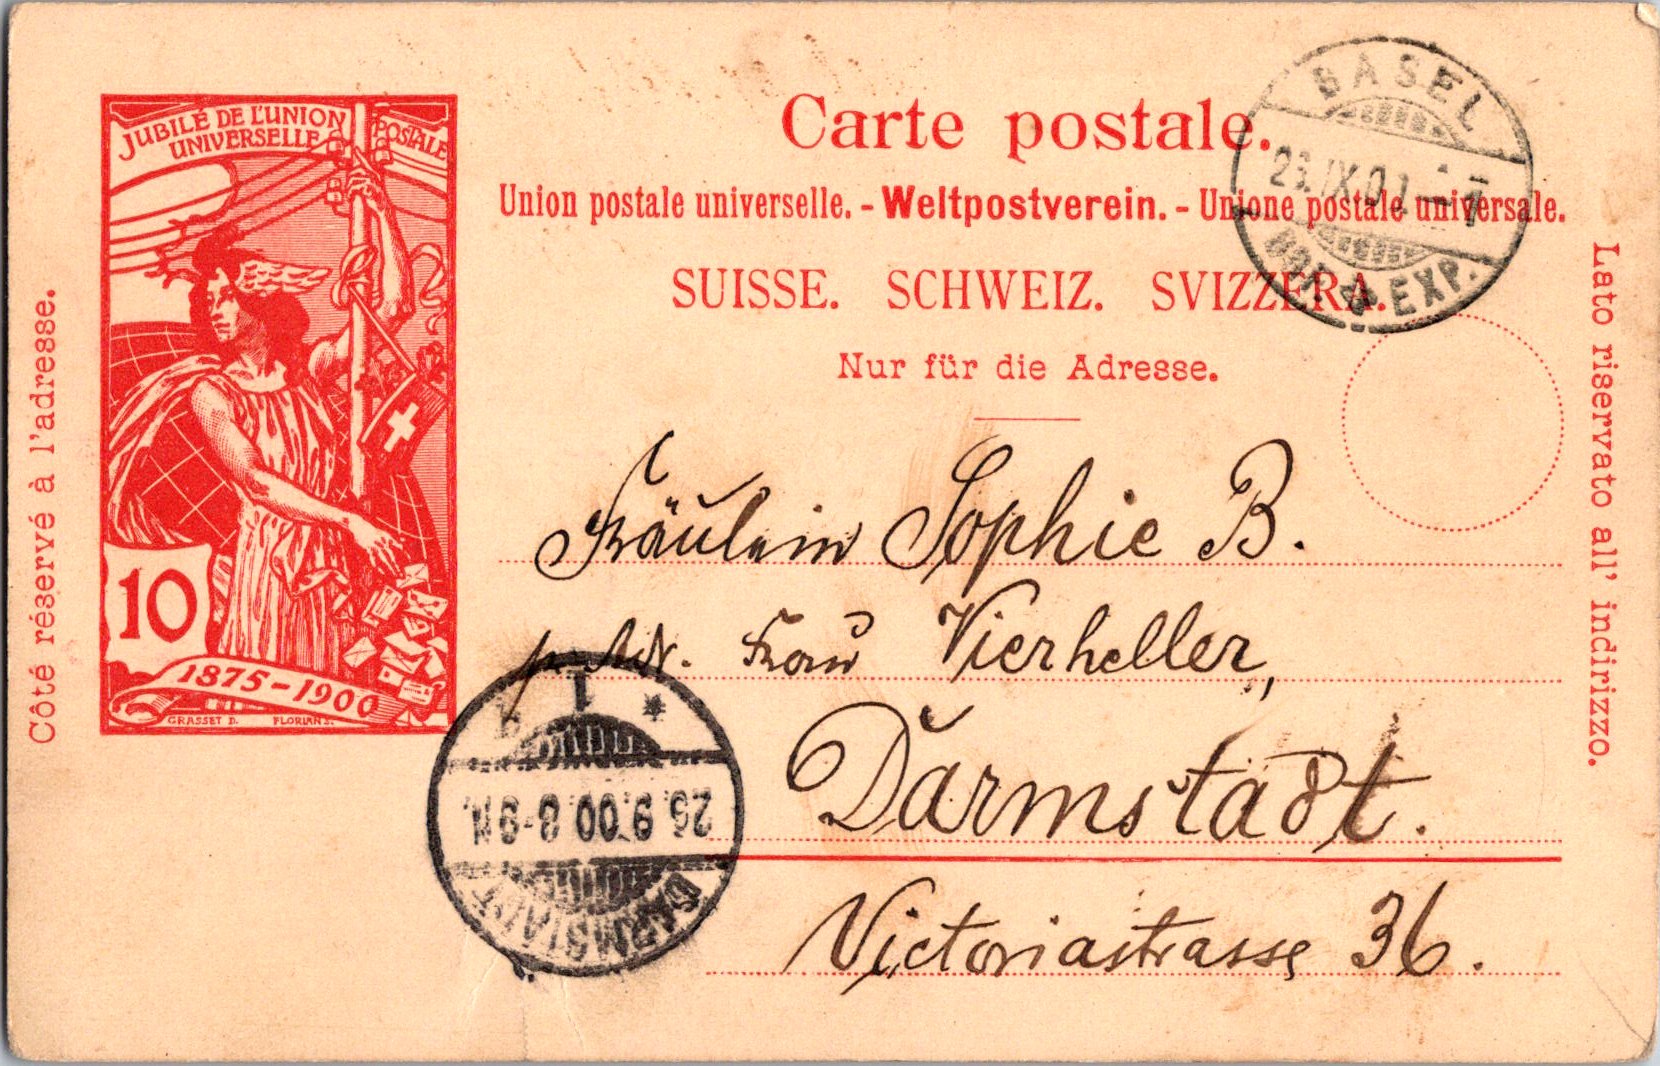 JUBILÉ DE L'UNION POSTALE
UNIVERSELLE
10
1875-1900
GRASSET D. FLORIAN S.
Côté réservé à l'adresse.
Carte postale.
Union postale universelle. - Weltpostverein. - Unione postale universale.
SUISSE. SCHWEIZ. SVIZZERA.
Nur für die Adresse.
Lato riservato all' indirizzo.
BASEL
IX.
EXP.
Fräulein Sophie B.
p. Adr. Frau Vierheller,
Darmstadt.
Victoriastrasse 36.
DARMSTADT
9.00. 8-9N.
1